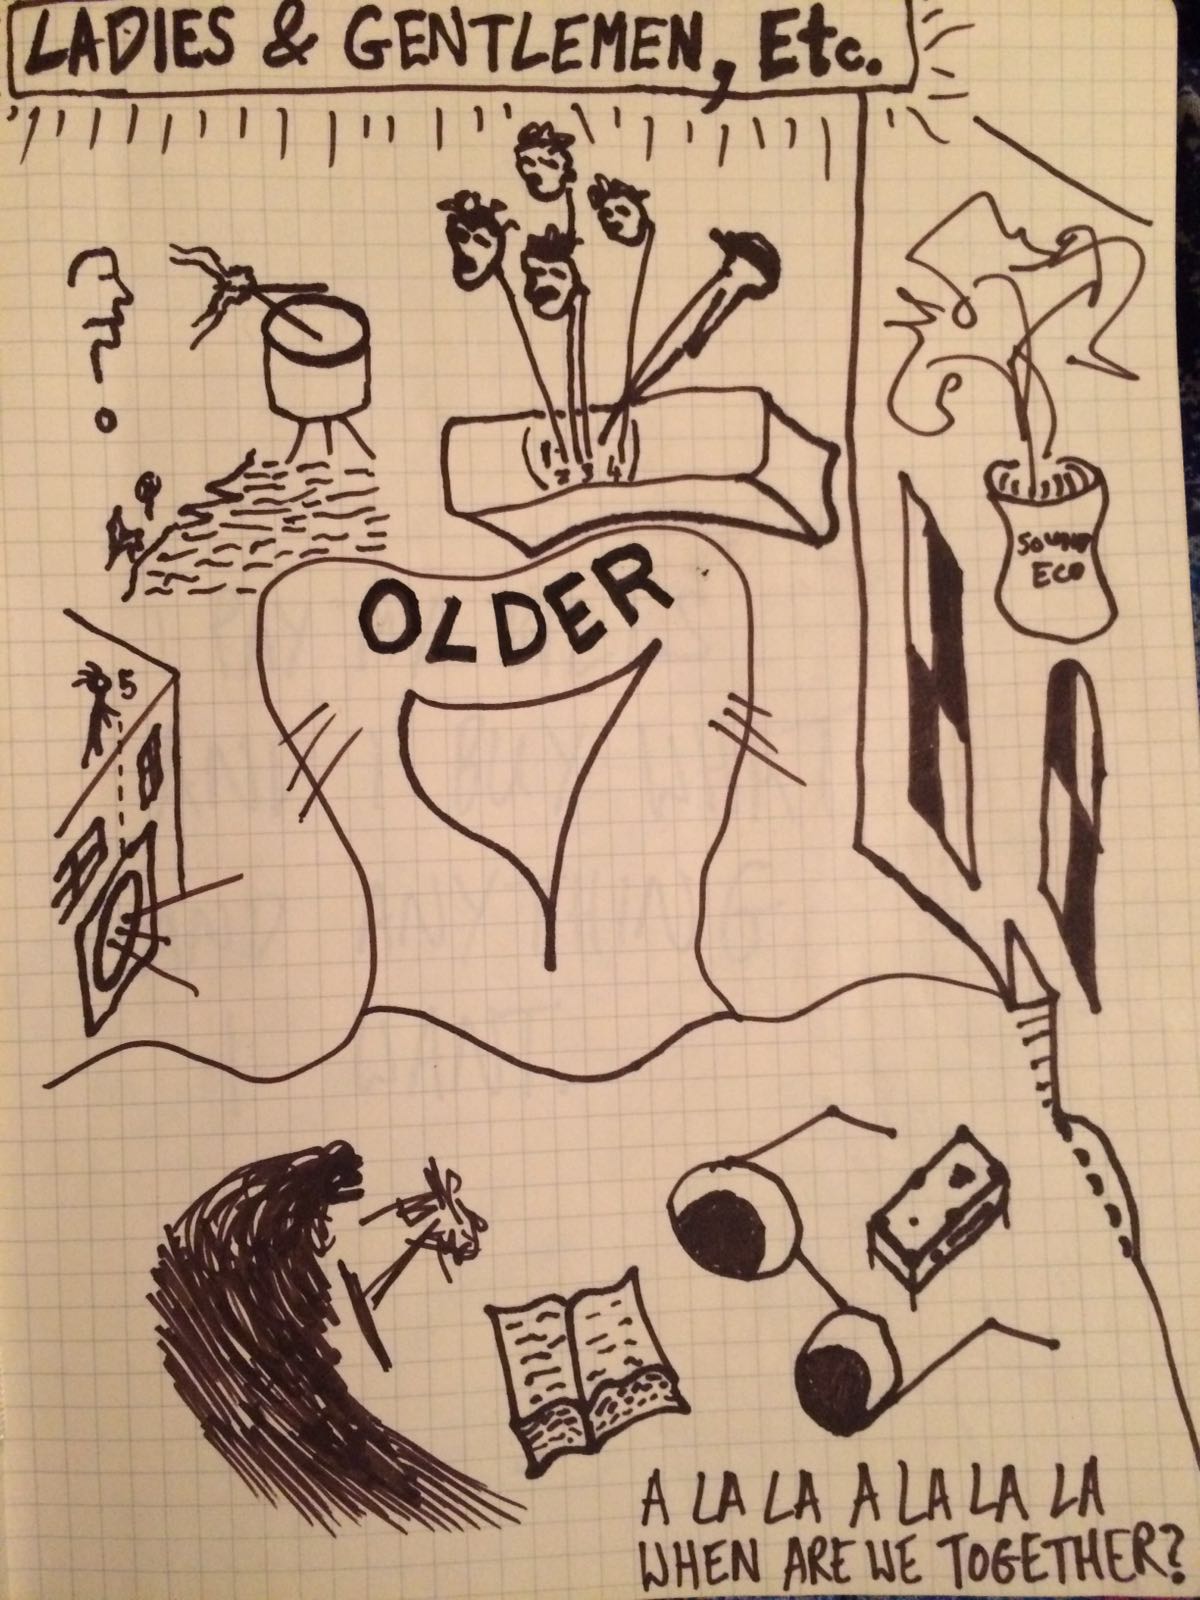 LADIES & GENTLEMEN, Etc.
1 2 3 4
SOUND
ECO
OLDER
5
A LA LA A LA LA LA
WHEN ARE WE TOGETHER?